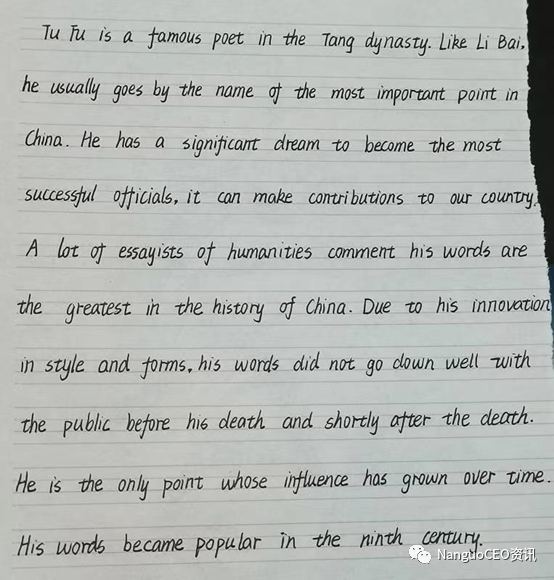 Tu Fu is a famous poet in the Tang dynasty. Like Li Bai,
he usually goes by the name of the most important point in
China. He has a significant dream to become the most
successful officials, it can make contributions to our country.
A lot of essayists of humanities comment his words are
the greatest in the history of China. Due to his innovation
in style and forms, his words did not go down well with
the public before his death and shortly after the death.
He is the only point whose influence has grown over time.
His words became popular in the ninth century.
NanguoCEO资讯